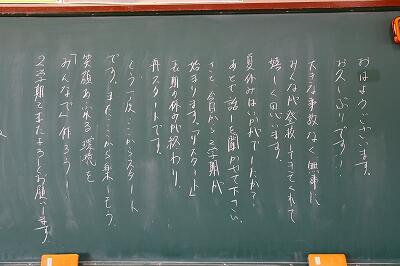 おはようございます。
お久しぶりです！
大きな事故なく無事に
みんなが登校してきてくれて
嬉しく思います。
夏休みはいかがでしたか？
あとで話を聞かせて下さい。
さて、今日から2学期が
始まります。「リスタート」
長期の休みが終わり、
再スタートです。
もう一度、ここからスタート
です。また、ここから楽しもう。
笑顔あふれる環境を
「みんなで」作ろう！
2学期もまたよろしくお願いします。